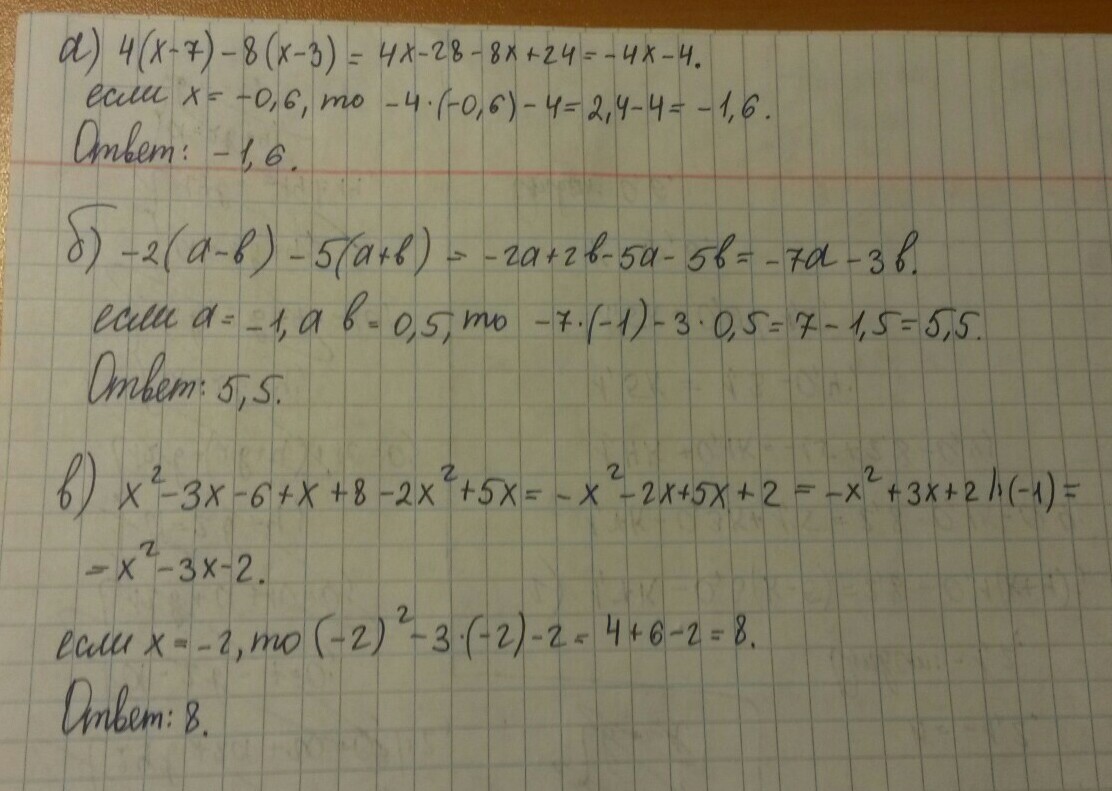 а) 4(x-7)-8(x-3) = 4x-28-8x+24=-4x-4.
если x = -0,6, то -4·(-0,6)-4=2,4-4=-1,6.
Ответ: -1,6.
б) -2(a-b)-5(a+b) = -2a+2b-5a-5b=-7a-3b.
если a = -1, а b = 0,5, то -7·(-1)-3·0,5=7-1,5=5,5.
Ответ: 5,5.
в) x²-3x-6+x+8-2x²+5x=-x²-2x+5x+2=-x²+3x+2 |·(-1)=
=x²-3x-2.
если x = -2, то (-2)²-3·(-2)-2=4+6-2=8.
Ответ: 8.